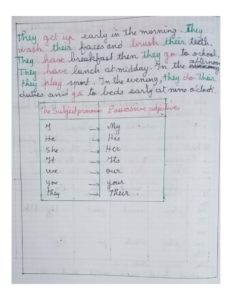 They get up early in the morning. They
wash their faces and brush their teeth.
They have breakfast then they go to school.
They have lunch at midday. In the afternoon
they play sport. In the evening, they do their
duties and go to beds early at nine o'clock.
The Subject pronoun Possessive adjectives
I → My
He → His
She → Her
It → Its
we → our
you → your
they → Their